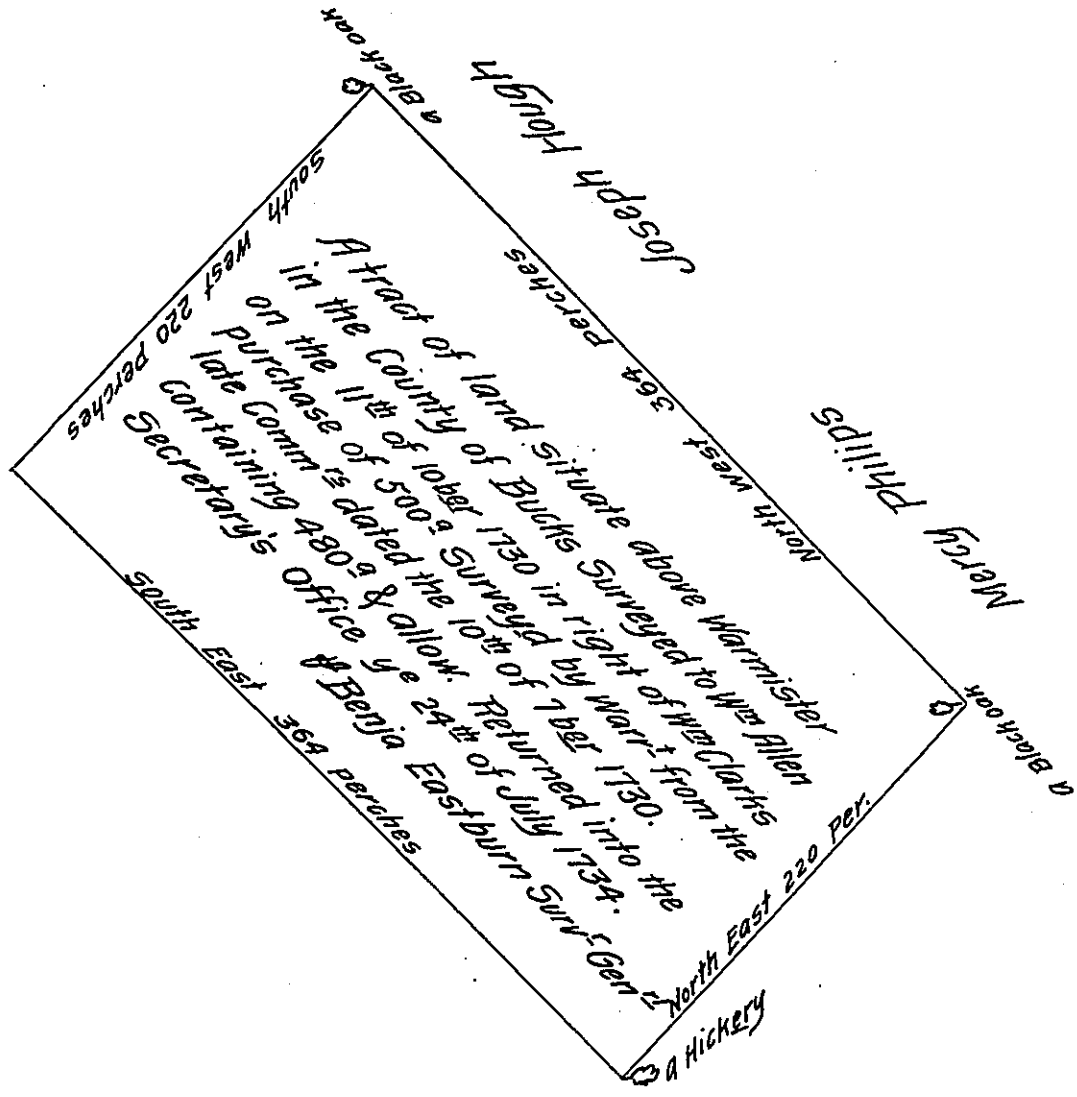 a Black oak
a Black oak
Joseph Hough
South West 220 perches
North West 364 perches
Mercy Phillips
A tract of land situate above Warmister
in the County of Bucks Surveyed to Wm Allen
on the 11th of 10ber 1730 in right of Wm Clarks
purchase of 500a Surveyd by Warrt from the
late Commrs dated the 10th of 7ber 1730.
Containing 480a & allow. Returned into the
Secretary's Office ye 24th of July 1734.
Benja Eastburn Survr Genrl
South East 364 perches
North East 220 Per.
a Black oak
a Hickery